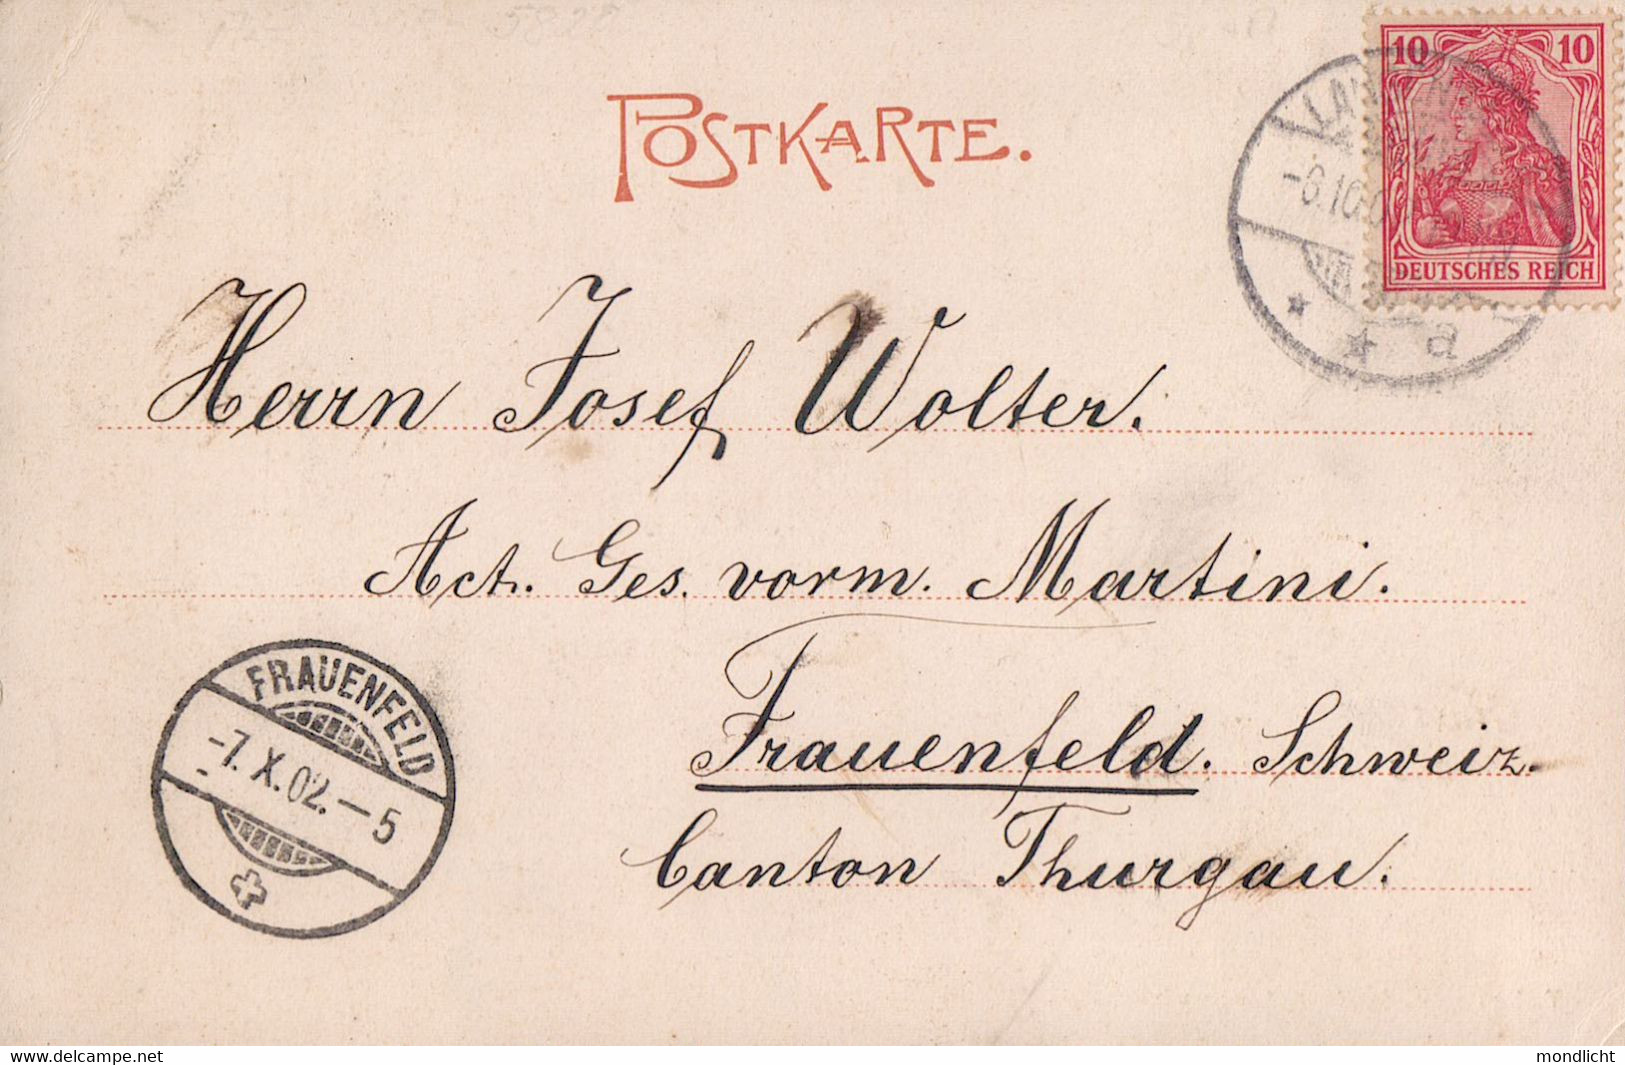 POSTKARTE.
10 10
DEUTSCHES REICH
a
Herrn Josef Wolter.
Act. Ges. vorm. Martini.
Frauenfeld. Schweiz.
Canton Thurgau.
FRAUENFELD
-7. X. 02. - 5
delcampe.net
mondlicht